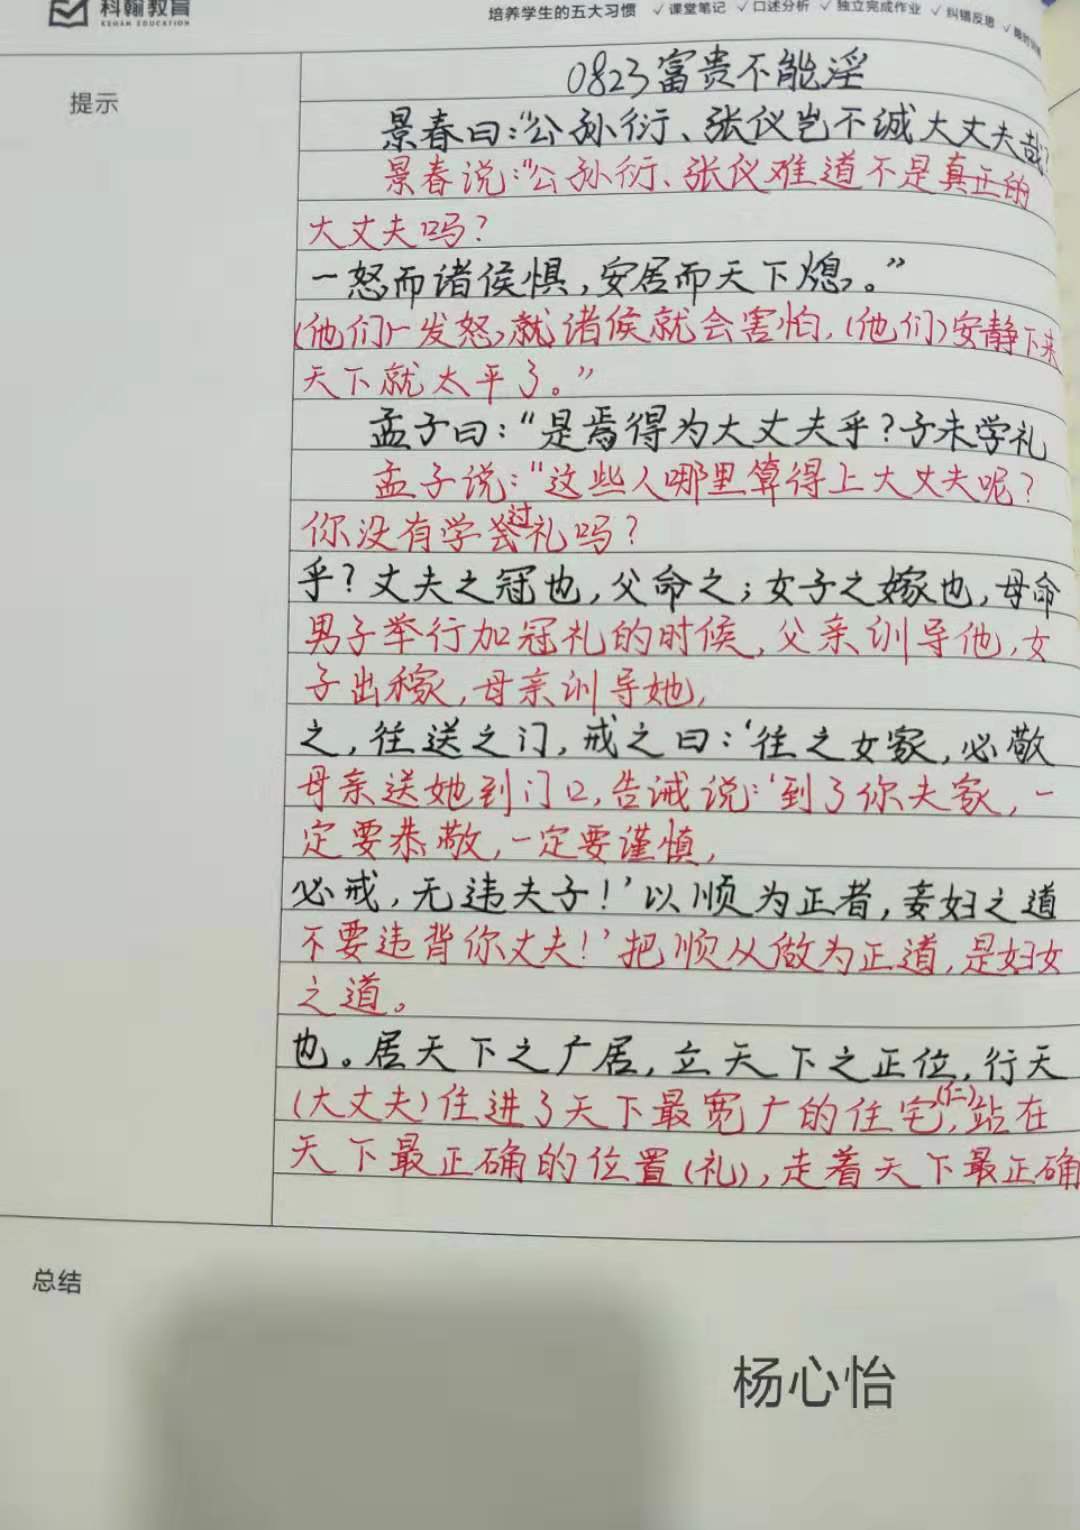 科翰教育
KEHAN EDUCATION
培养学生的五大习惯 ✓课堂笔记 ✓口述分析 ✓独立完成作业 ✓纠错反思 ✓
提示
0823富贵不能淫
景春曰:“公孙衍、张仪岂不诚大丈夫哉?
景春说:“公孙衍、张仪难道不是真正的
大丈夫吗?
一怒而诸侯惧,安居而天下熄。”
(他们)一发怒,就诸侯就会害怕,(他们)安静下来
天下就太平了。”
孟子曰:“是焉得为大丈夫乎?子未学礼
孟子说:“这些人哪里算得上大丈夫呢?
你没有学过礼吗?
乎?丈夫之冠也,父命之;女子之嫁也,母命
男子举行加冠礼的时候,父亲训导他,女
子出稼,母亲训导她,
之,往送之门,戒之曰:‘往之女家,必敬
母亲送她到门口,告诫说:‘到了你夫家,一
定要恭敬,一定要谨慎,
必戒,无违夫子!’以顺为正者,妾妇之道
不要违背你丈夫!’把顺从做为正道,是妇女
之道。
也。居天下之广居,立天下之正位,行天
(大丈夫)住进了天下最宽广的住宅(仁),站在
天下最正确的位置(礼),走着天下最正确
总结
杨心怡